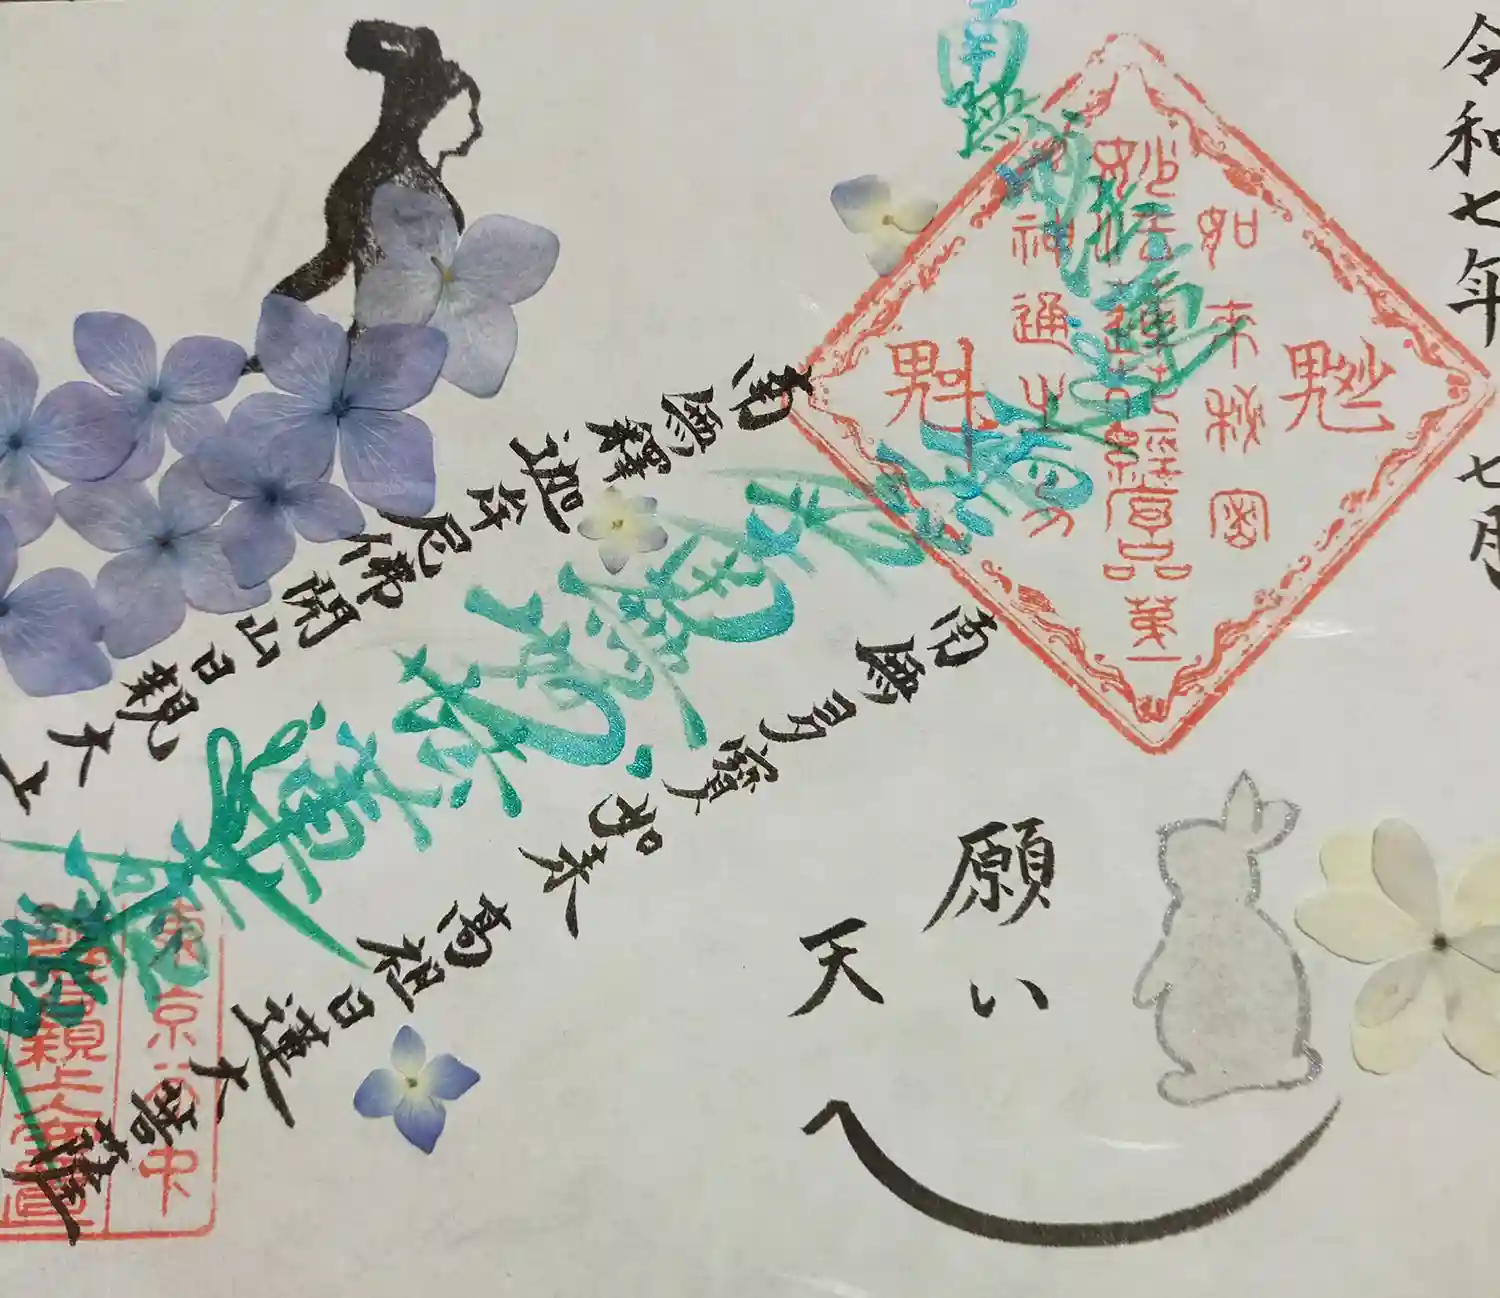 令和七年 七月
如来秘密
神通之力
南無多寶如来 高祖日蓮大菩薩
南無妙法蓮華経
南無釋迦牟尼佛 開山日親大上
願い
天
東京谷中